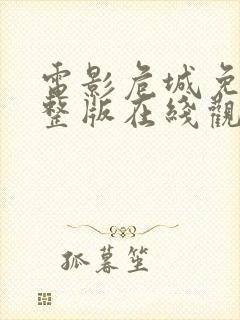 電影危城免
整版在綫觀
孤暮笙